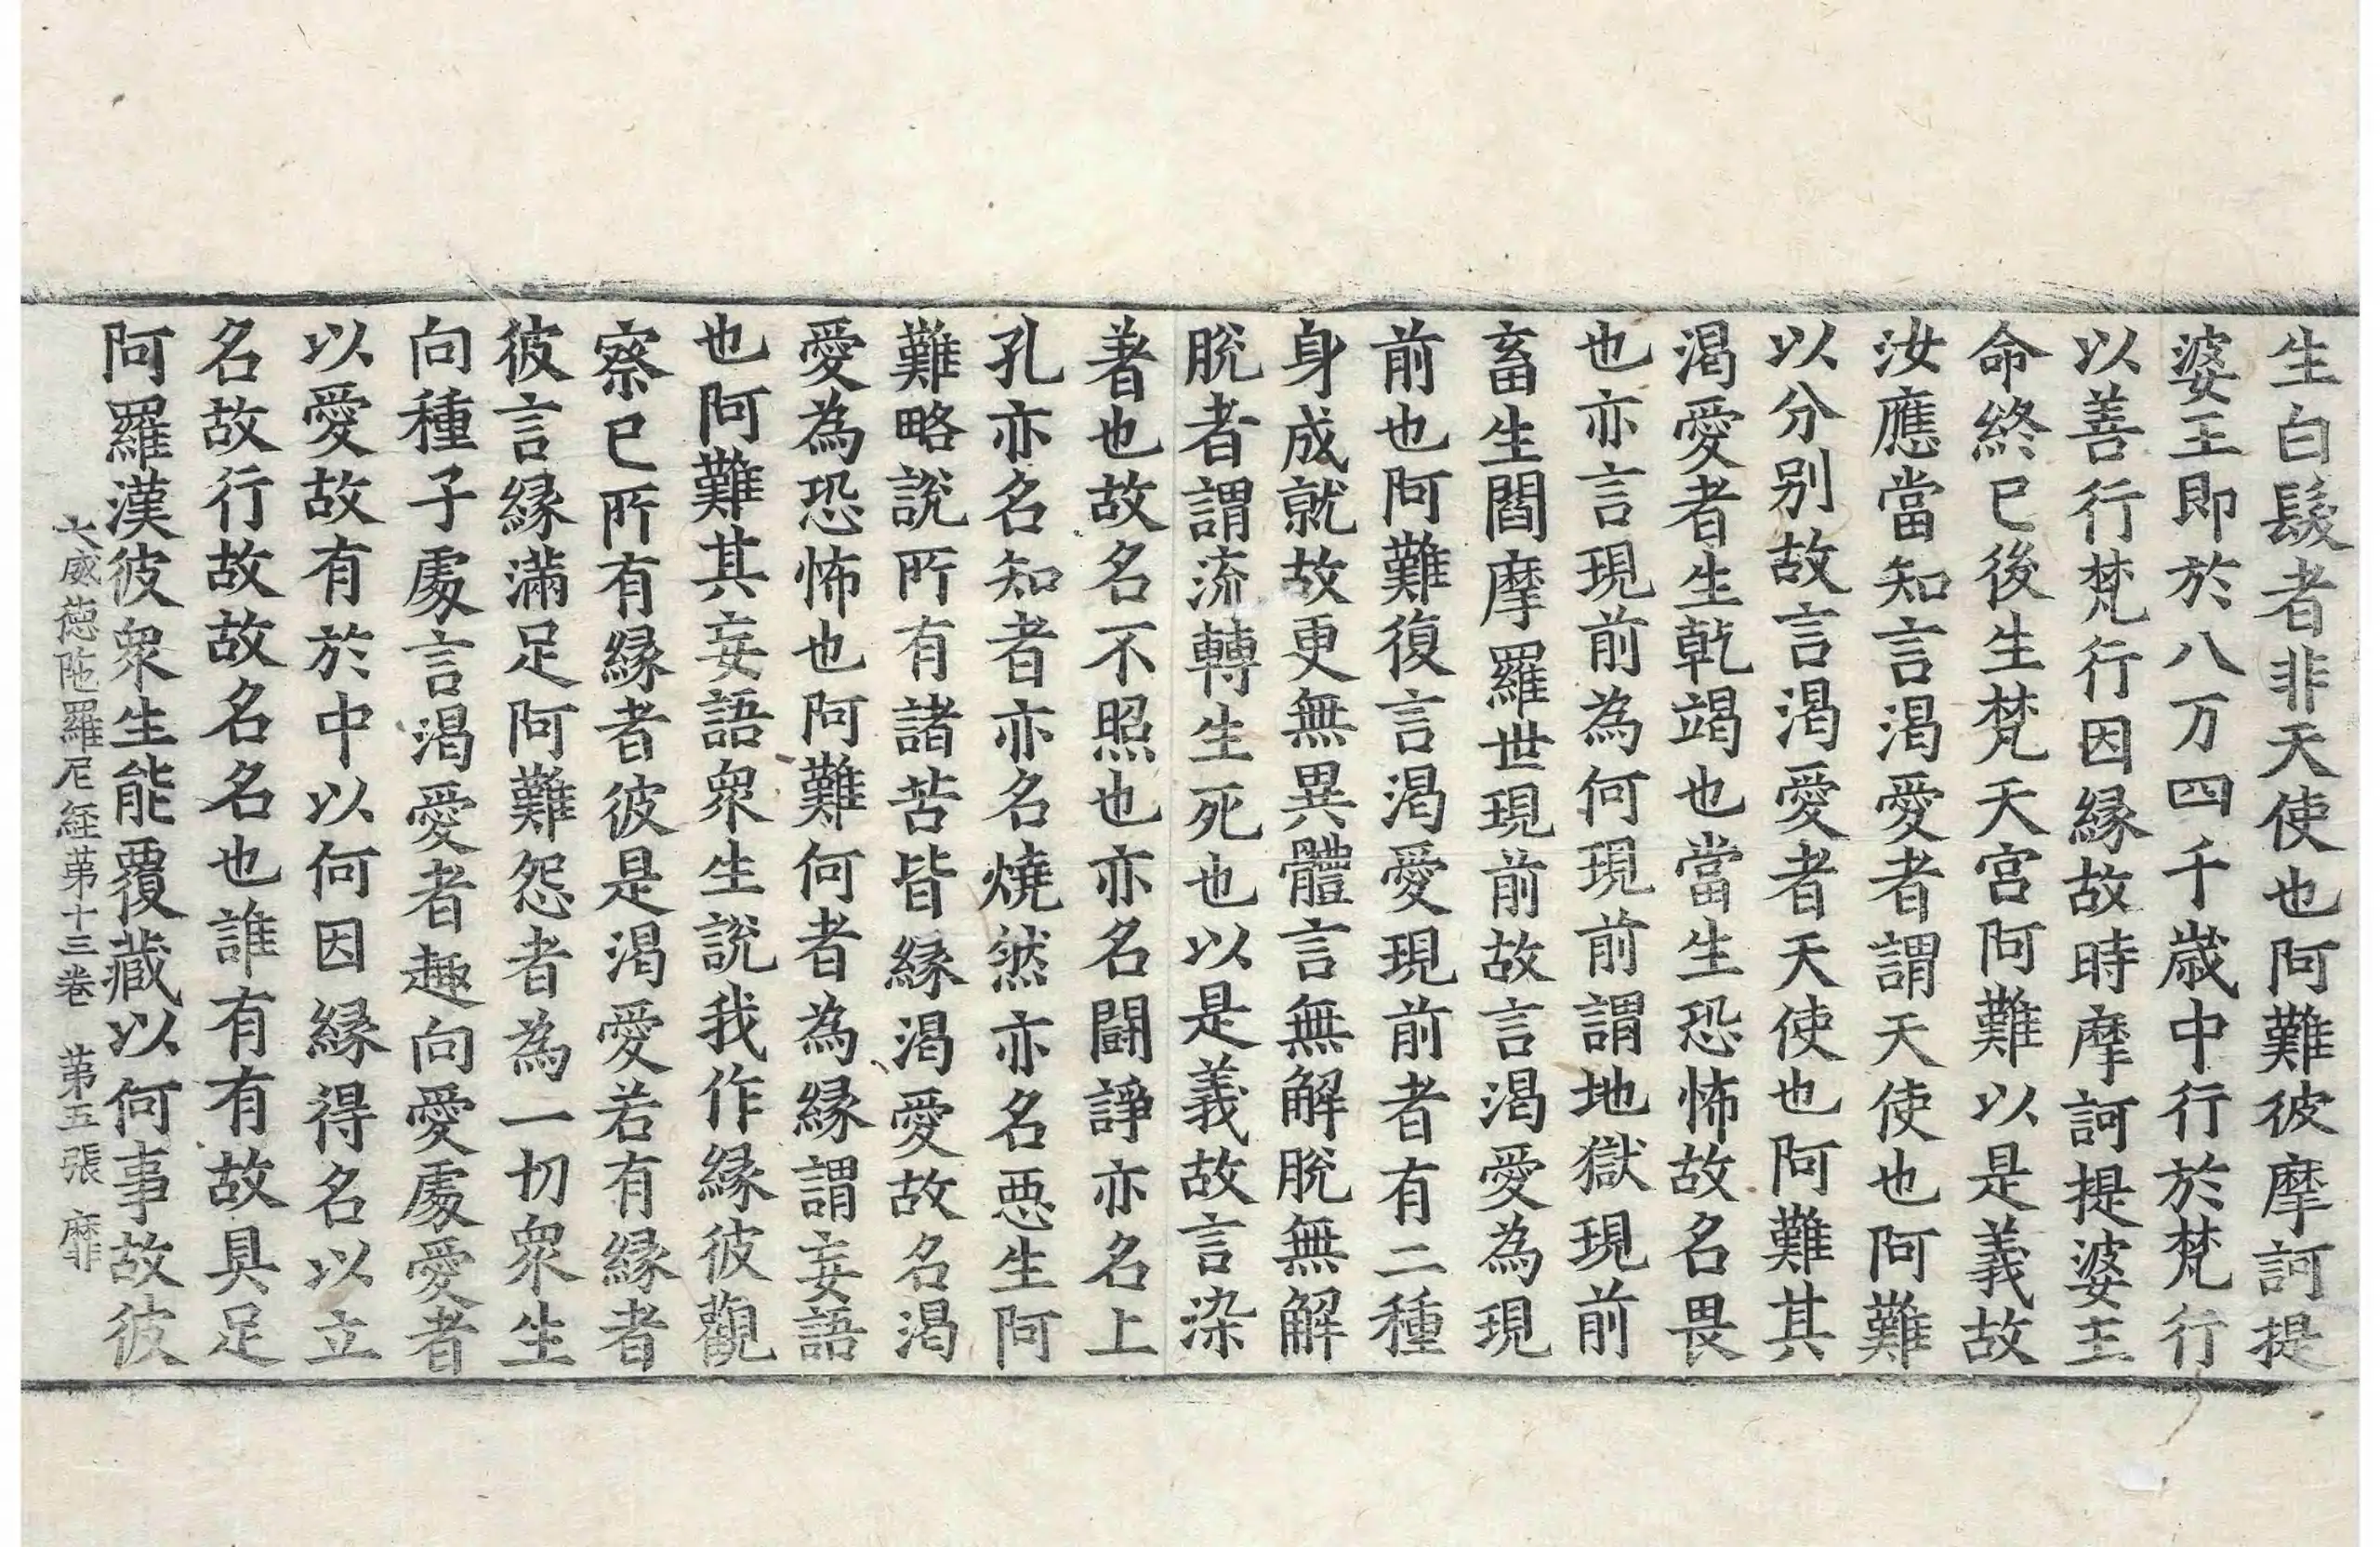 生白髮者非天使也阿難彼摩訶提
婆王即於八万四千歲中行於梵行
以善行梵行因緣故時摩訶提婆王
命終已後生梵天宮阿難以是義故
汝應當知言渴愛者謂天使也阿難
以分別故言渴愛者天使也阿難其
渴愛者生乾竭也當生恐怖故名畏
也亦言現前為何現前謂地獄現前
畜生閻摩羅世現前故言渴愛為現
前也阿難復言渴愛現前者有二種
身成就故更無異體言無解脫無解
脫者謂流轉生死也以是義故言染
著也故名不照也亦名闘諍亦名上
孔亦名知者亦名燒然亦名惡生阿
難略說所有諸苦皆緣渴愛故名渴
愛為恐怖也阿難何者為緣謂妄語
也阿難其妄語衆生說我作緣彼觀
察已所有緣者彼是渴愛若有緣者
彼言緣滿足阿難怨者為一切衆生
向種子處言渴愛者趣向愛處愛者
以愛故有於中以何因緣得名以立
名故行故故名名也誰有有故具足
阿羅漢彼衆生能覆藏以何事故彼
大威德陁羅尼経苐十三卷　苐五張　靡